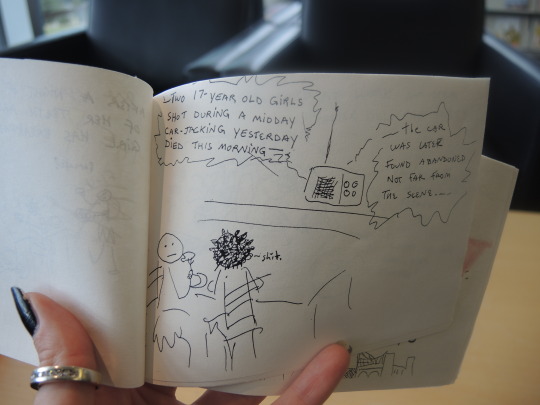 TWO 17-YEAR OLD GIRLS
SHOT DURING A MIDDAY
CAR-JACKING YESTERDAY
DIED THIS MORNING
THE CAR
WAS LATER
FOUND ABANDONED
NOT FAR FROM
THE SCENE....
shit.